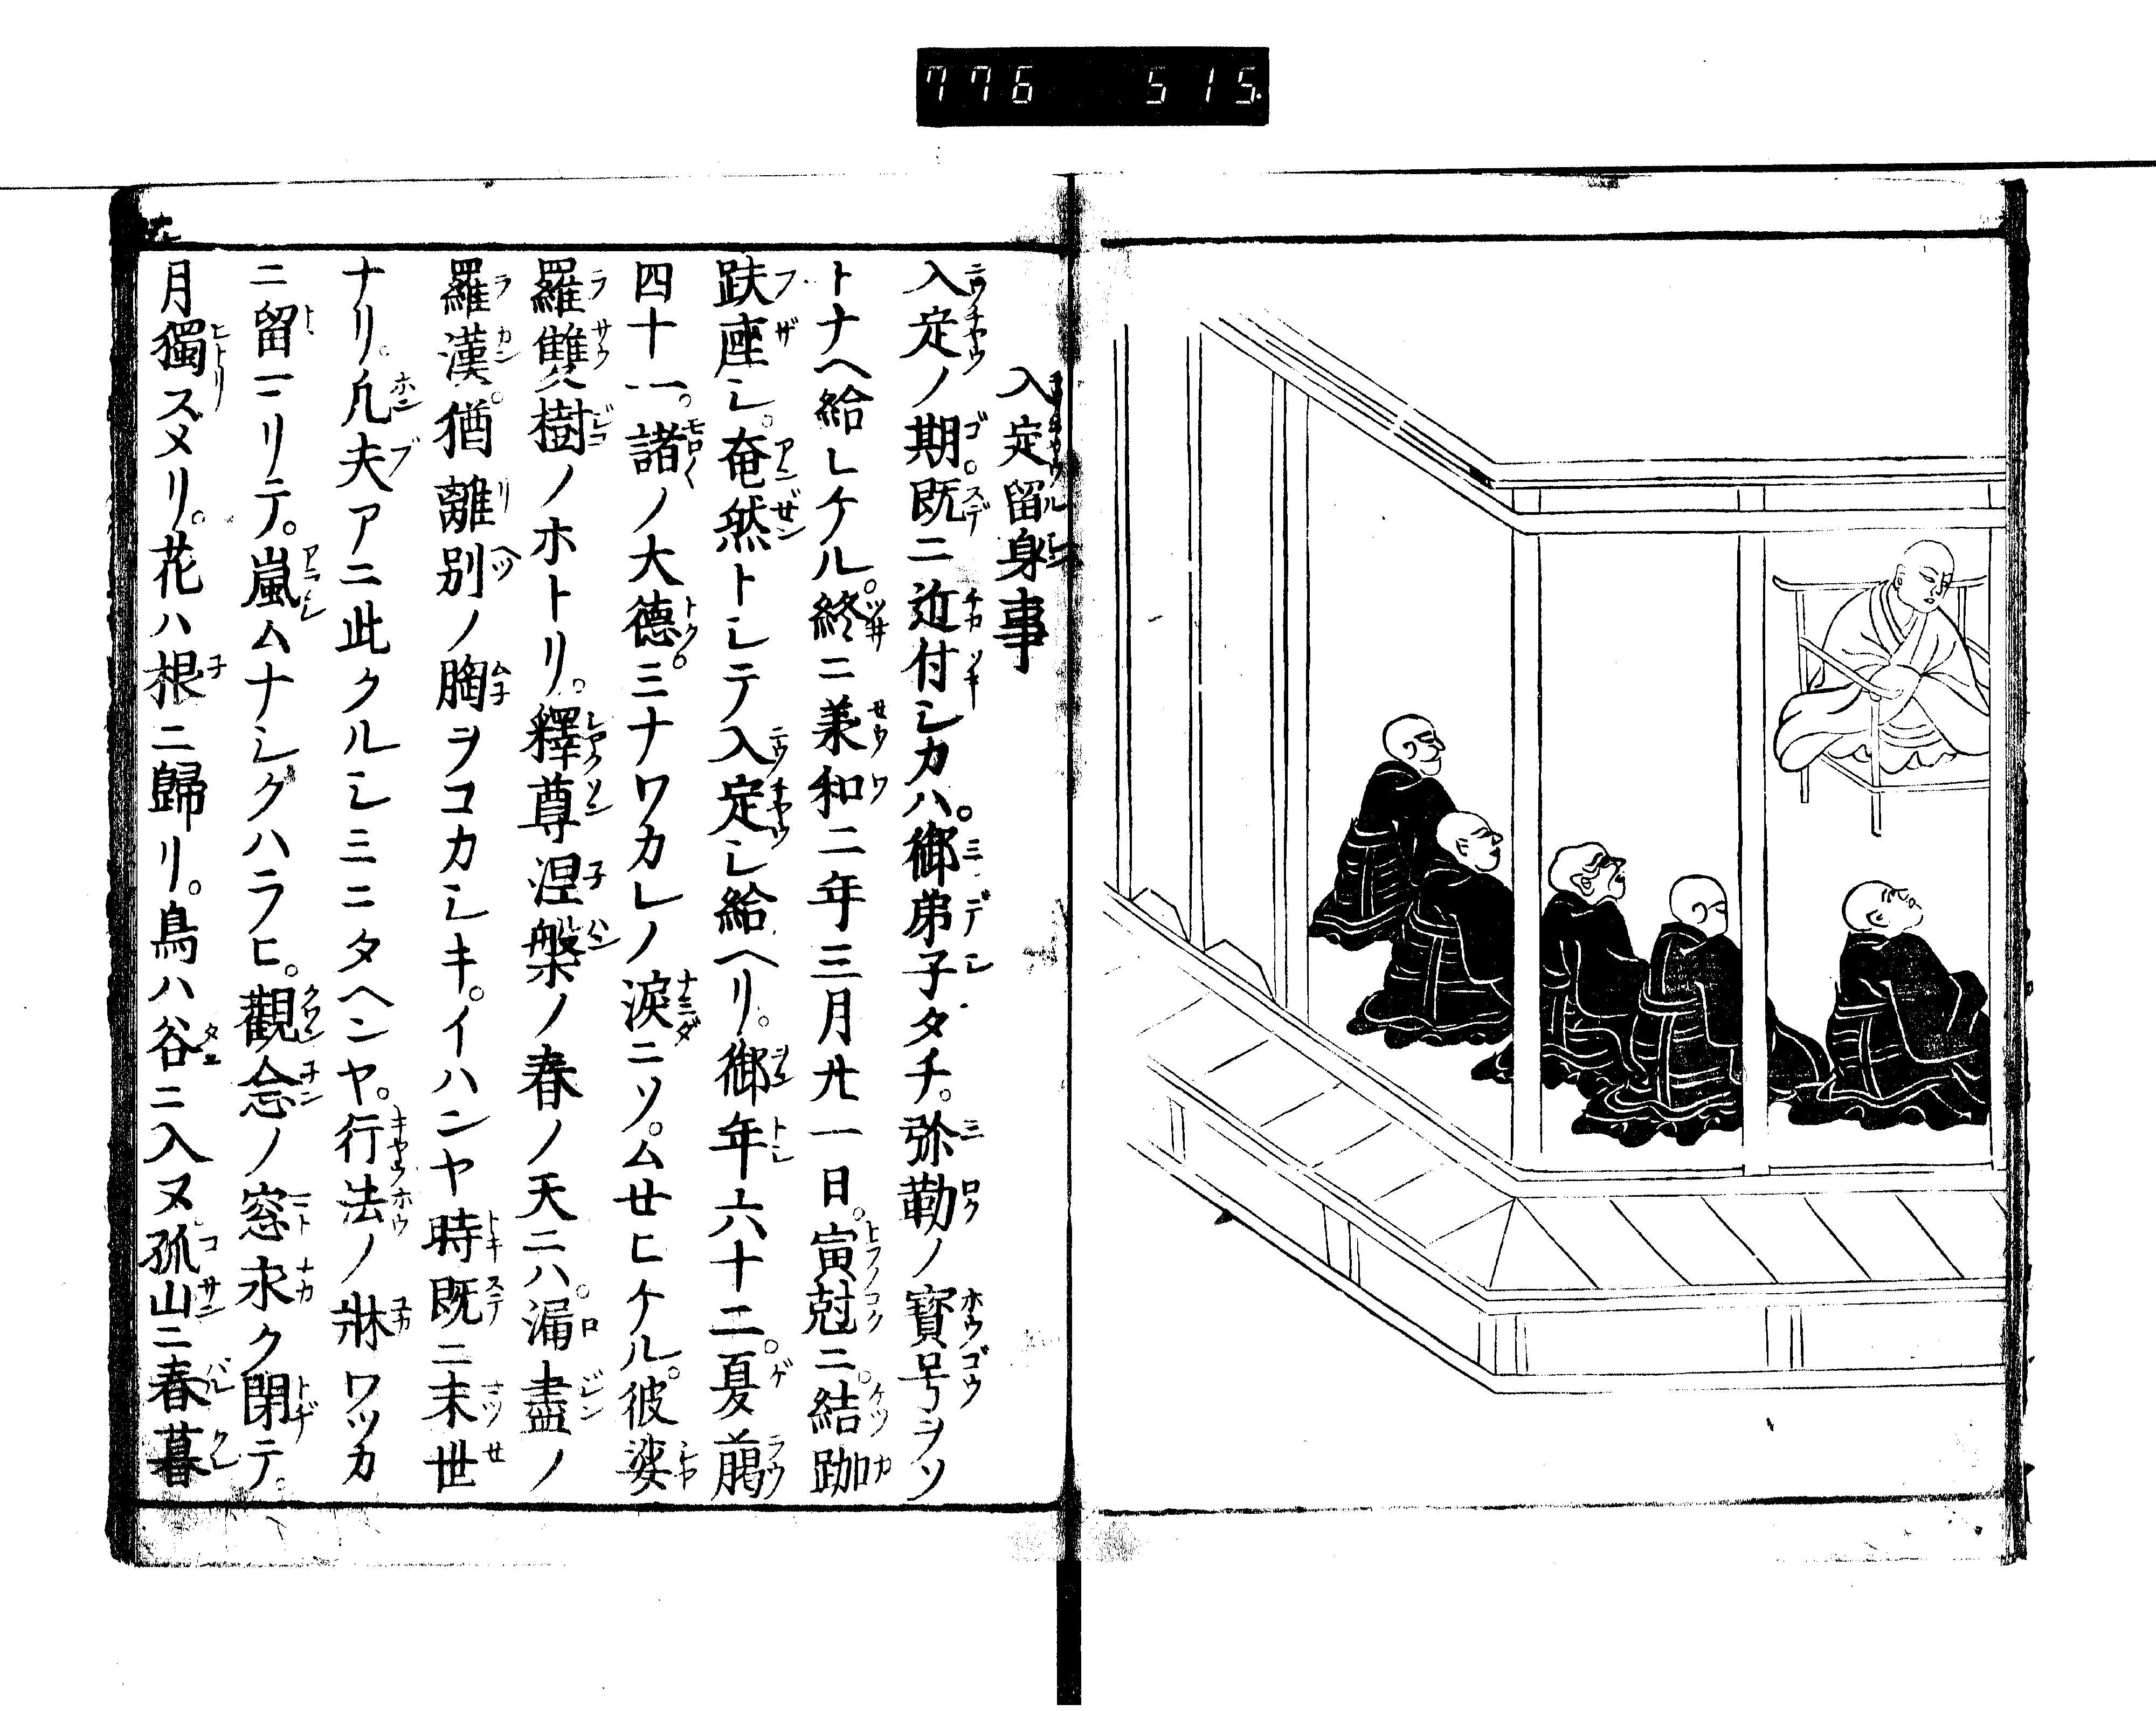 776 515
入定留身事
入定ノ期。既ニ近付シカハ。御弟子タチ。弥勒ノ寳号ヲソ
トナヘ給シケル。終ニ兼和二年三月廿一日。寅尅ニ。結跏
趺座シ。奄然トシテ入定シ給ヘリ。御年六十二。夏﨟
四十一。諸ノ大德。ミナワカレノ涙ニソ。ムセヒケル。彼娑
羅雙樹ノホトリ。釋尊涅槃ノ春ノ天ニハ。漏盡ノ
羅漢。猶離別ノ胸ヲコカシキ。イハンヤ時既ニ末世
ナリ。凡夫アニ此クルシミニタヘンヤ。行法ノ牀ワツカ
ニ留ミリテ。嵐ムナシクハラヒ。觀念ノ窓永ク閉テ。
月獨スメリ。花ハ根ニ歸リ。鳥ハ谷ニ入ヌ孤山ニ春暮